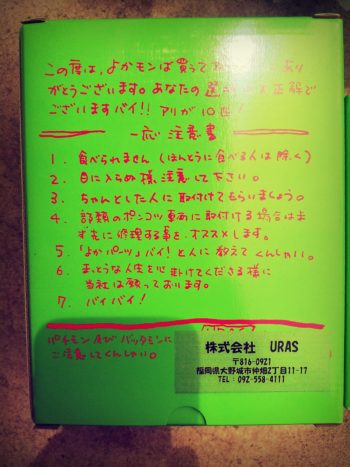 この度は、よかモンば買って あり
がとうございます。あなたの選 正解で
ございますバイ!! アリが10匹!
一応注意書
1. 食べられません(ほんとうに食べる人は除く)
2. 目に入らぬ様、注意して下さい。
3. ちゃんとした人に取付けてもらいましょう。
4. 諸類のポンコツ車両に取付ける場合はま
ず先に修理する事をオススメします。
5. 「よかパーツ」バイ!と人に教えてくんしゃい。
6. まっとうな人生を心掛けてくださる様に
当社は願っております。
7. バイバイ!
パチモン及びバッタモンに
ご注意してくんしゃい。
株式会社 URAS
〒816-0921
福岡県大野城市仲畑2丁目11-17
TEL: 092-558-4111